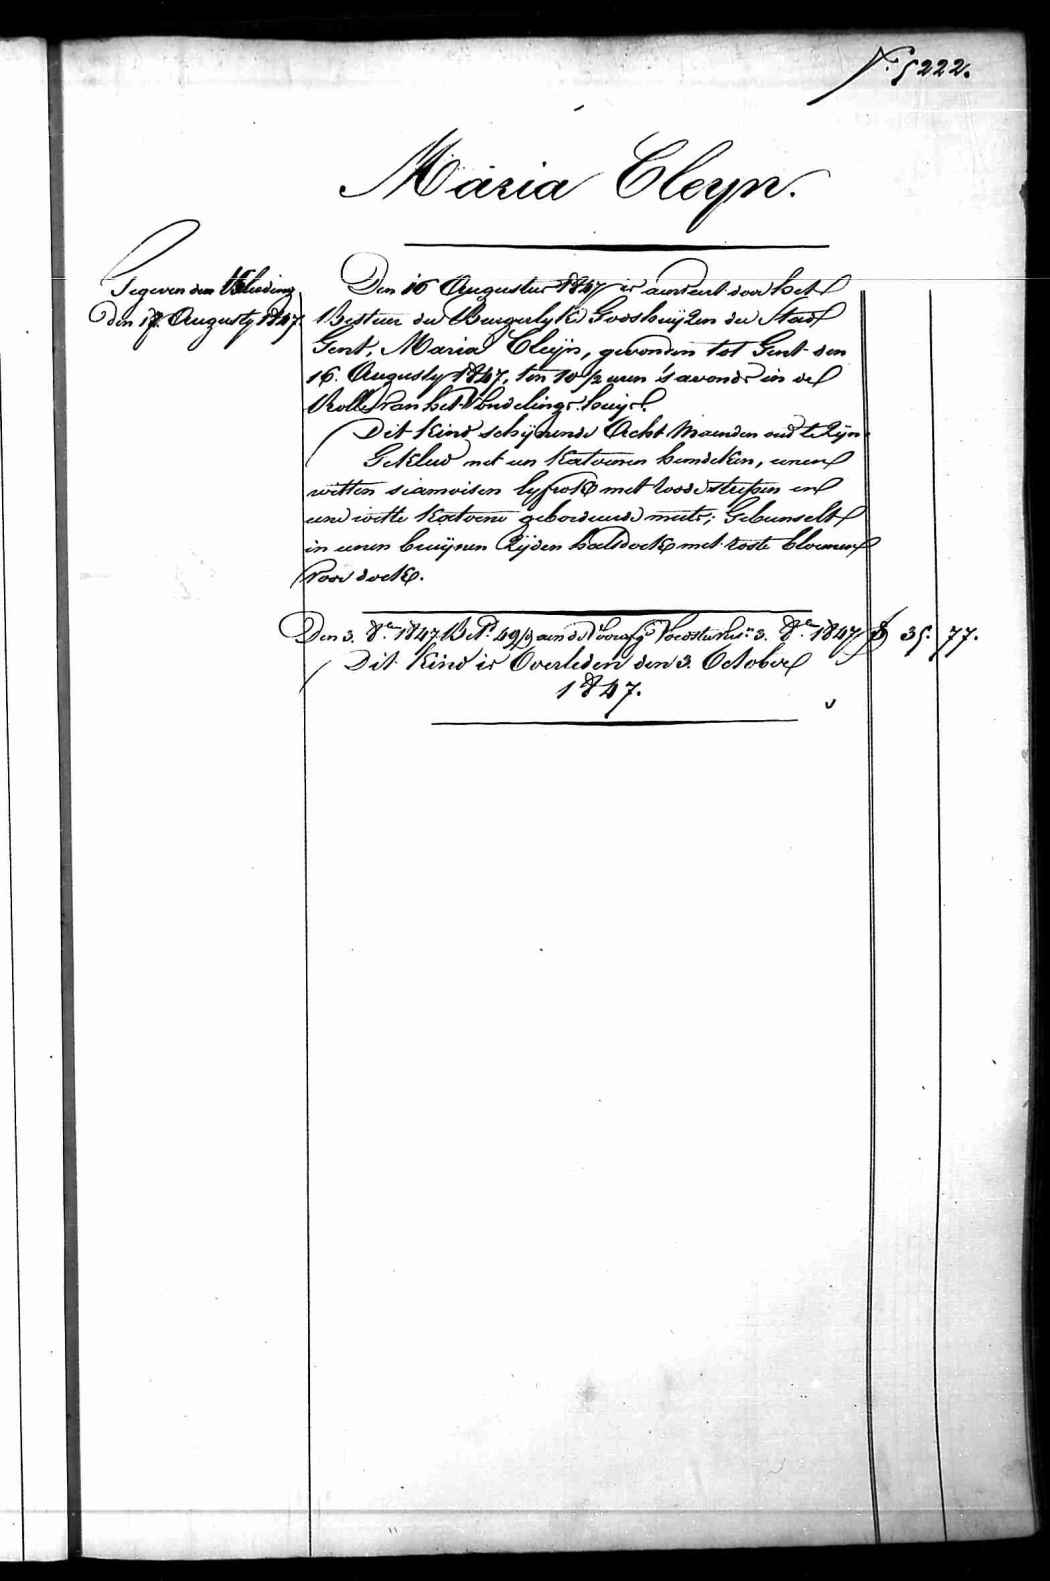 N.° 5222.
Maria Cleyn.
Gegeven den Kleeding
den 17. Augusty 1847.
Den 16 Augustus 1847 is aenveert door het
Bestuer der Burgerlyke Godshuijzen der Stad
Gent, Maria Cleijn, gevonden tot Gent den
16. Augusty 1847, ten 10 1/2 uren 's avonds in de
Rolle van het Vondelings-huijs.
Dit kind schijnende Acht Maenden oud te zijn
Gekleed met een Katoenen hemdeken, eenen
witten siamoisen lyfrok met roode streepen en
eene witte Katoene geboordeerde muts; Gebunselt
in eenen bruijnen Zijden halsdoek met roste bloemen
voor doek.
Den 3. 8.er 1847. Bet.d 49/d aen de voorsz. Voedster 3. 8.er 1847 35. 77.
Dit Kind is Overleden den 3. October
1847.